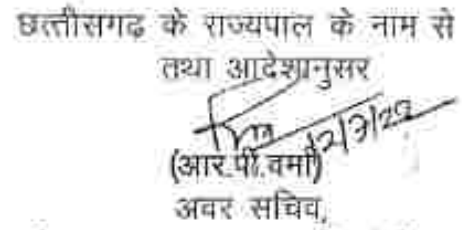 छत्तीसगढ़ के राज्यपाल के नाम से
तथा आदेशानुसर
12/7/22
(आर.पी.वर्मा)
अवर सचिव,